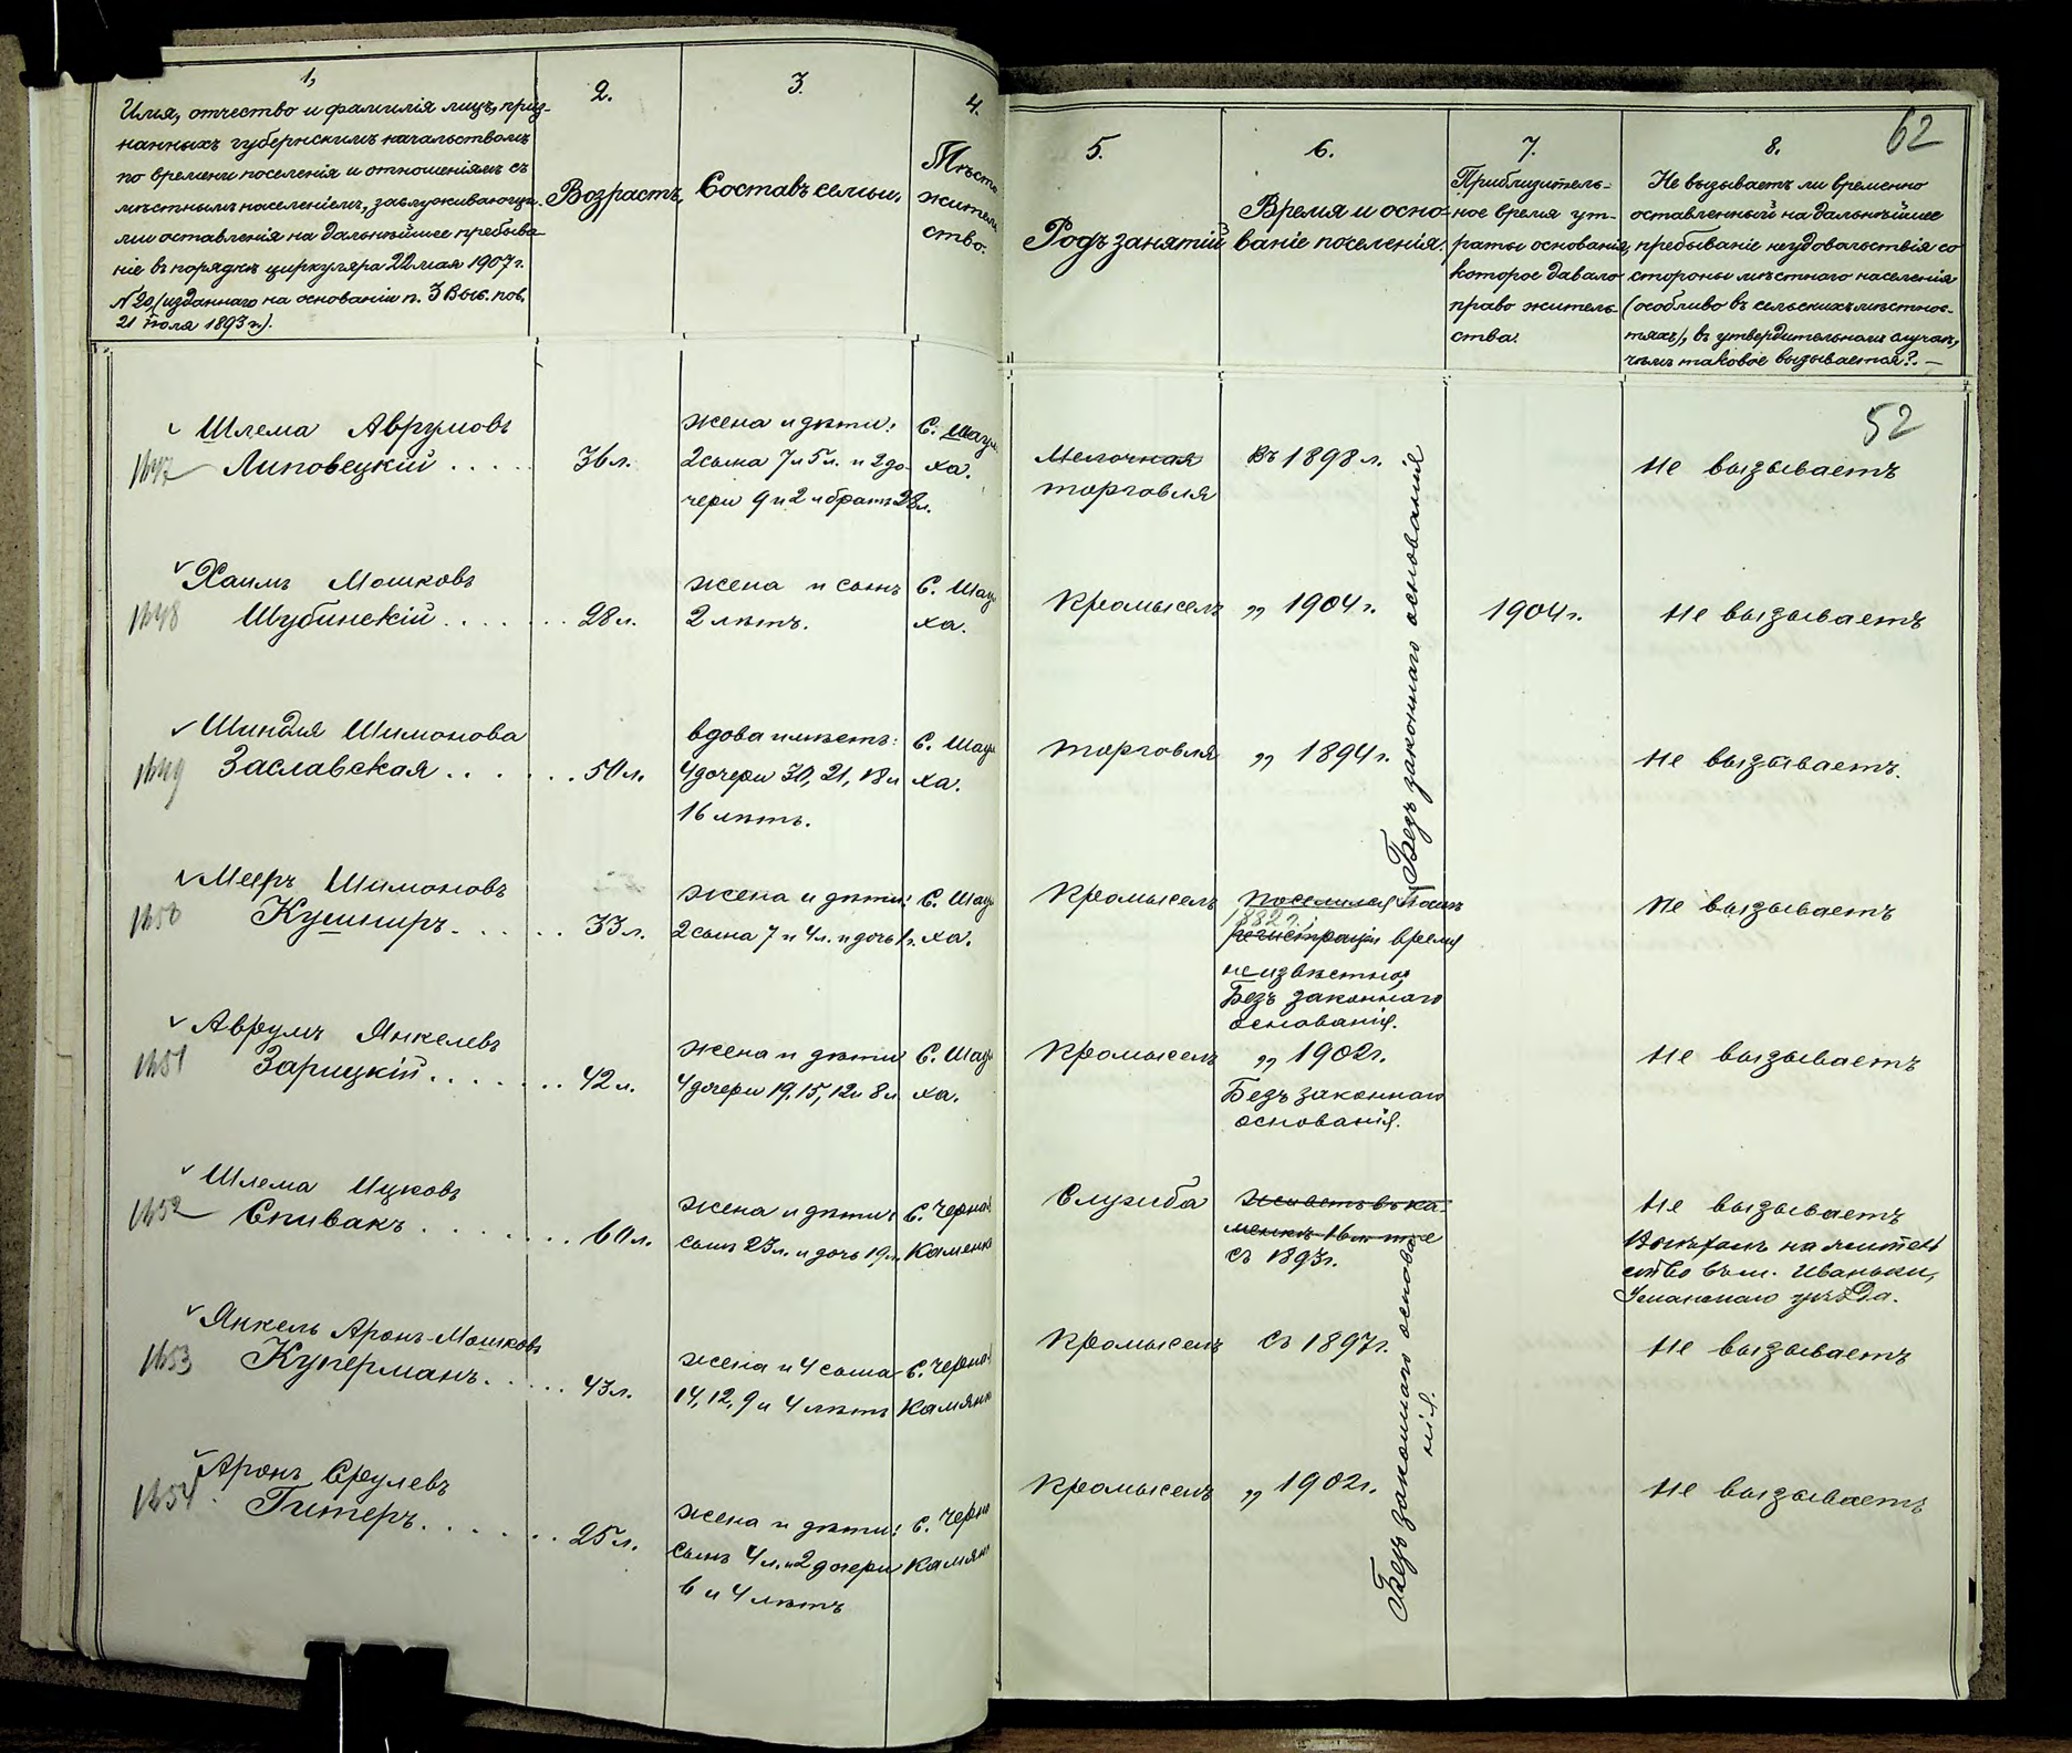 1,
Имя, отчество и фамилія лицъ, приз-
нанныхъ губернскимъ начальствомъ
по времени поселенія и отношеніямъ съ
мѣстнымъ населеніемъ, заслуживающи-
ми оставленія на дальнѣйшее пребыва-
ніе въ порядкѣ циркуляра 22 мая 1907 г.
№ 20 (изданнаго на основаніи п. 3 Выс. пов.
21 іюля 1893 г.).
2.
Возрастъ,
3.
Составъ семьи.
4.
Мѣсто
жител
ство.
5.
Родъ занятій
6.
Время и осно-
ваніе поселенія.
7.
Приблизитель-
ное время ут-
раты основанія,
которое давало
право житель-
ства.
8.
Не вызываетъ ли временно
оставленный на дальнѣйшее
пребываніе неудовольствія со
стороны мѣстнаго населенія
(особливо въ сельскихъ мѣстнос-
тяхъ), въ утвердительномъ случаѣ,
чѣмъ таковое вызывается?. —
62
52
Шлема Аврумовъ
1647 Липовецкій . . . . .
36 л.
жена и дѣти:
2 сына 7 и 5 л. и 2 до-
чери 9 и 2 и братъ 28 л.
С. Шаул
ха.
Мелочная
торговля
въ 1898 г.
Не вызываетъ
Хаимъ Мошковъ
1648 Шубинскій . . . . . . .
28 л.
жена и сынъ
2 лѣтъ.
С. Шау
ха.
Кромыселъ
„ 1904 г.
1904 г.
Не вызываетъ
Шиндля Шимонова
1649 Заславская . . . . . .
50 л.
вдова имѣетъ:
4 дочери 30, 21, 18 и
16 лѣтъ.
С. Шаул
ха.
торговля
„ 1894 г.
Не вызываетъ.
Безъ законнаго основанія
Мееръ Шимоновъ
1650 Кушниръ . . . . . .
33 л.
жена и дѣти:
2 сына 7 и 4 л. и дочь 1 г.
С. Шау
ха.
Кромыселъ
Поселился
1882 г.;
регистраціи время
неизвѣстно,
Безъ законнаго
основанія.
Не вызываетъ
Аврумъ Янкелевъ
1651 Зарицкій . . . . . . .
42 л.
жена и дѣти
4 дочери 19, 15, 12 и 8 л.
С. Шау
ха.
Кромыселъ
„ 1902 г.
Безъ законнаго
основанія.
Не вызываетъ
Шлема Ицковъ
1652 Спивакъ . . . . . . .
60 л.
жена и дѣти:
сынъ 23 л. и дочь 19 л.
С. Черна
Каменк
Служба
Живетъ въ Ка-
менкѣ 16
съ 1893 г.
Не вызываетъ
на житель
ство въ м. Иваньки,
Уманскаго уѣзда.
Янкель Аронъ-Мошковъ
1653 Куперманъ . . . . .
43 л.
жена и 4 сына
14, 12, 9 и 4 лѣтъ
С. Черна
Камянк
Кромыселъ
съ 1897 г.
Не вызываетъ
Аронъ Срулевъ
1654 Гитеръ . . . . . . .
25 л.
жена и дѣти:
сынъ 4 л. и 2 дочери
6 и 4 лѣтъ
С. Черн
Камян
Кромыселъ
„ 1902 г.
Не вызываетъ
Безъ законнаго основа-
нія.